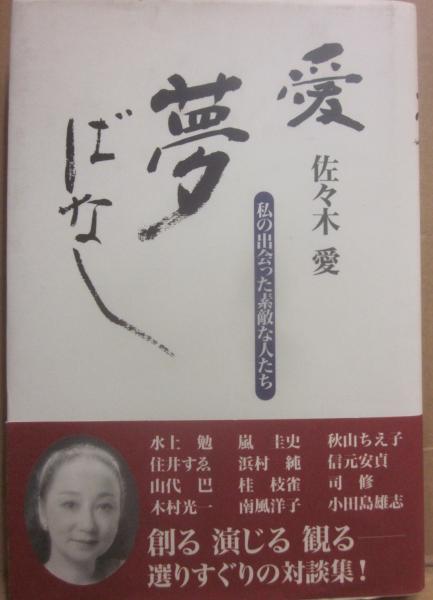 愛
夢
ばなし
佐々木 愛
私の出会った素敵な人たち
水上 勉 嵐 圭史 秋山ちえ子
住井すゑ 浜村 純 信元安貞
山代 巴 桂 枝雀 司 修
木村光一 南風洋子 小田島雄志
創る 演じる 観る——
選りすぐりの対談集!